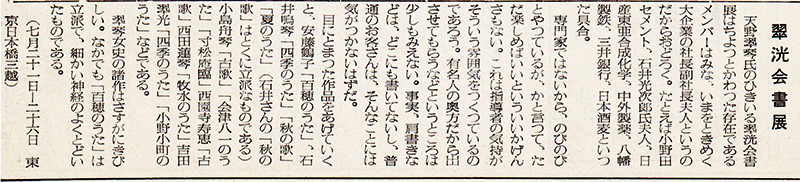 翠洸会書展
天野翠琴氏のひきいる翠洸会書
展はちょっとかわつた存在である
メンバーはみな、いまをときめく
大企業の社長副社長夫人というの
だからおどろく。たとえば小野田
セメント、石井光次郎氏夫人、日
産東亜合成化学、中外製薬、八幡
製鉄、三井銀行、日本酒麦といつ
た具合。
専門家ではないから、のびのび
とやつているが、かと言つて、た
だ楽しめばいいといういいかげん
さもない。これは指導者の気持が
そういう雰囲気をつくつているの
であろう。有名人の奥方だから出
させてもらうなどというところは
少しもみえない。事実、肩書きな
どは、どこにも書いてないし、普
通のお客さんは、そんなことには
気がつかないはずだ。
目にとまつた作品をあげていく
と、安藤量子「百穂のうた」、石
井鳴琴「四季のうた」「秋の歌」
「夏のうた」(石井さんの「秋の
歌」はとくに立派なものである)
小島舟琴「古歌」「会津八一のう
た」「寸松庵臨」西園寺寿恵「古
歌」西田蓮琴「牧水のうた」吉田
翠光「四季のうた」「小野小町の
うた」などである。
翠琴女史の諸作はさすがにきび
しい。なかでも「百穂のうた」は
立派で、細かい神経のよくとどい
たものである。
(七月二十一日―二十六日 東
京日本橋三越)